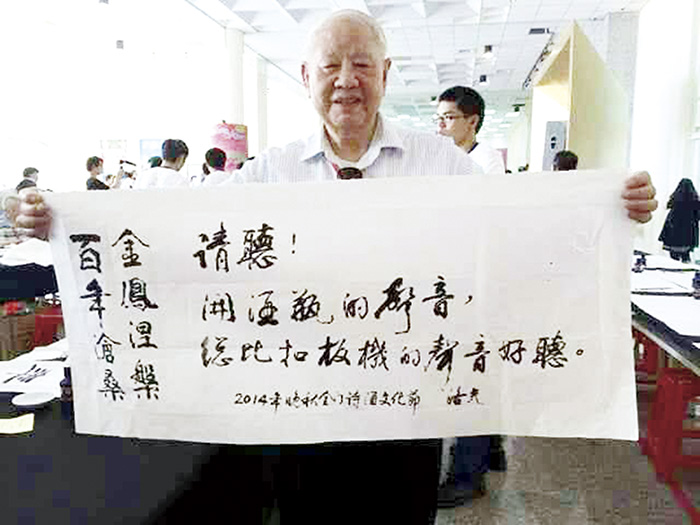 金鳳涅槃
百年滄桑
请聽！
開酒瓶的聲音，
總比扣板機的聲音好聽。
2014年晚秋金门詩酒文化節